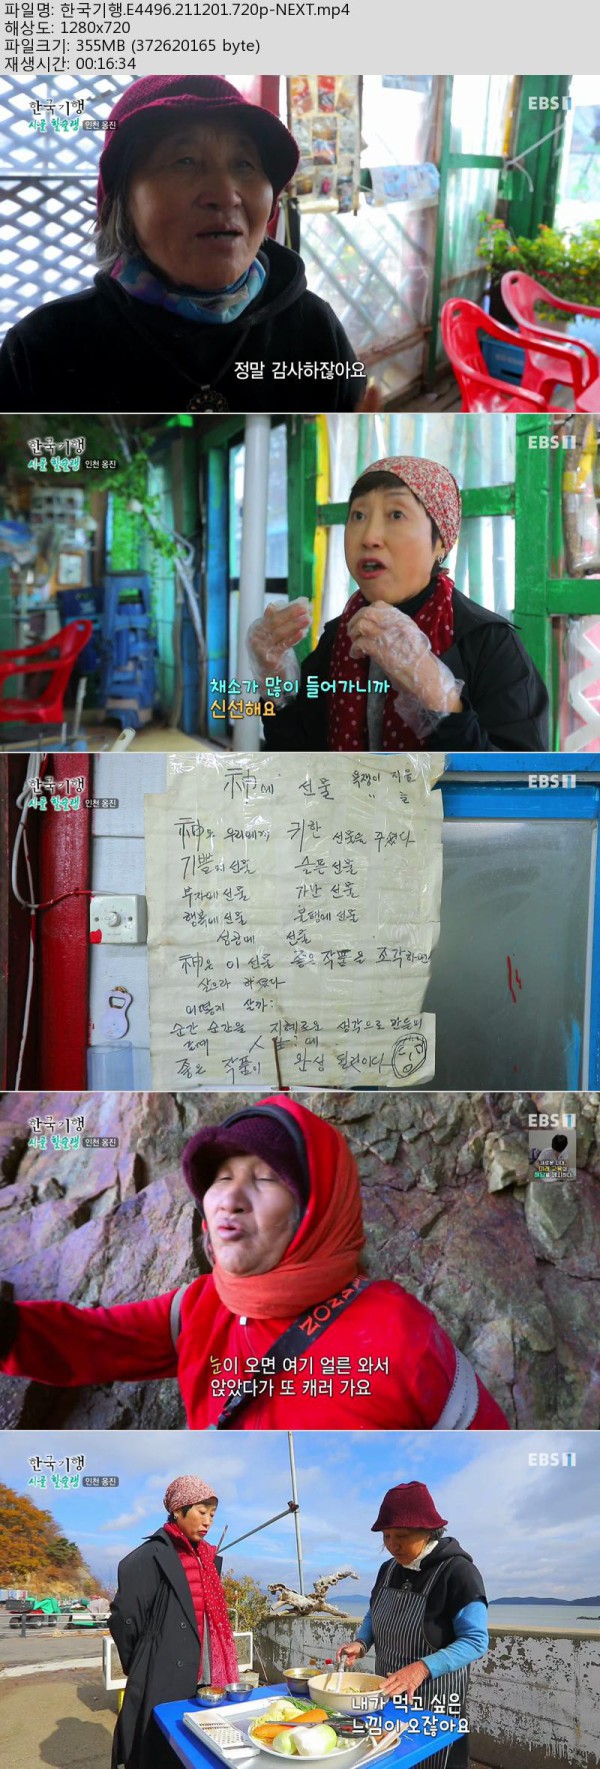 파일명: 한국기행.E4496.211201.720p-NEXT.mp4
해상도: 1280x720
파일크기: 355MB (372620165 byte)
재생시간: 00:16:34
한국기행
시골 힐술랭 인천 옹진
EBS1
정말 감사하잖아요
한국기행
시골 힐술랭 인천 옹진
EBS1
채소가 많이 들어가니까
신선해요
한국기행
시골 힐술랭 인천 옹진
EBS1
神에 선물
神은 우리에게 귀한 선물을 주셨다
기쁨의 선물 슬픈 선물
부자에 선물 가난 선물
행복에 선물 불행에 선물
성공에 선물
神은 이 선물 좋은 작품을 조각하면
살으라 하셨다
어떻게 살까?
순간 순간을 지혜로운 생각으로
좋은 작품이 완성 될것이다
한국기행
시골 힐술랭 인천 옹진
EBS1
눈이 오면 여기 얼른 와서
앉았다가 또 캐러 가요
한국기행
시골 힐술랭 인천 옹진
EBS1
내가 먹고 싶은
느낌이 오잖아요